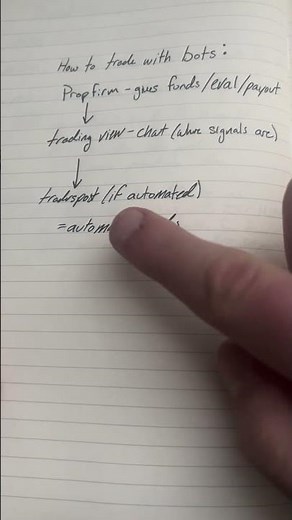 How to trade with bots:
Prop firm - gives funds/eval/payout
trading view - chart (where signals are)
traderspost (if automated)